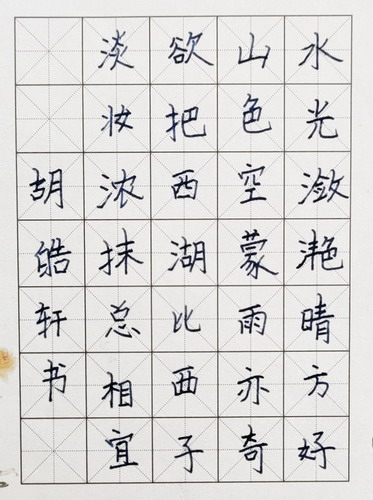 水光潋滟晴方好
山色空蒙雨亦奇
欲把西湖比西子
淡妆浓抹总相宜
胡皓轩书